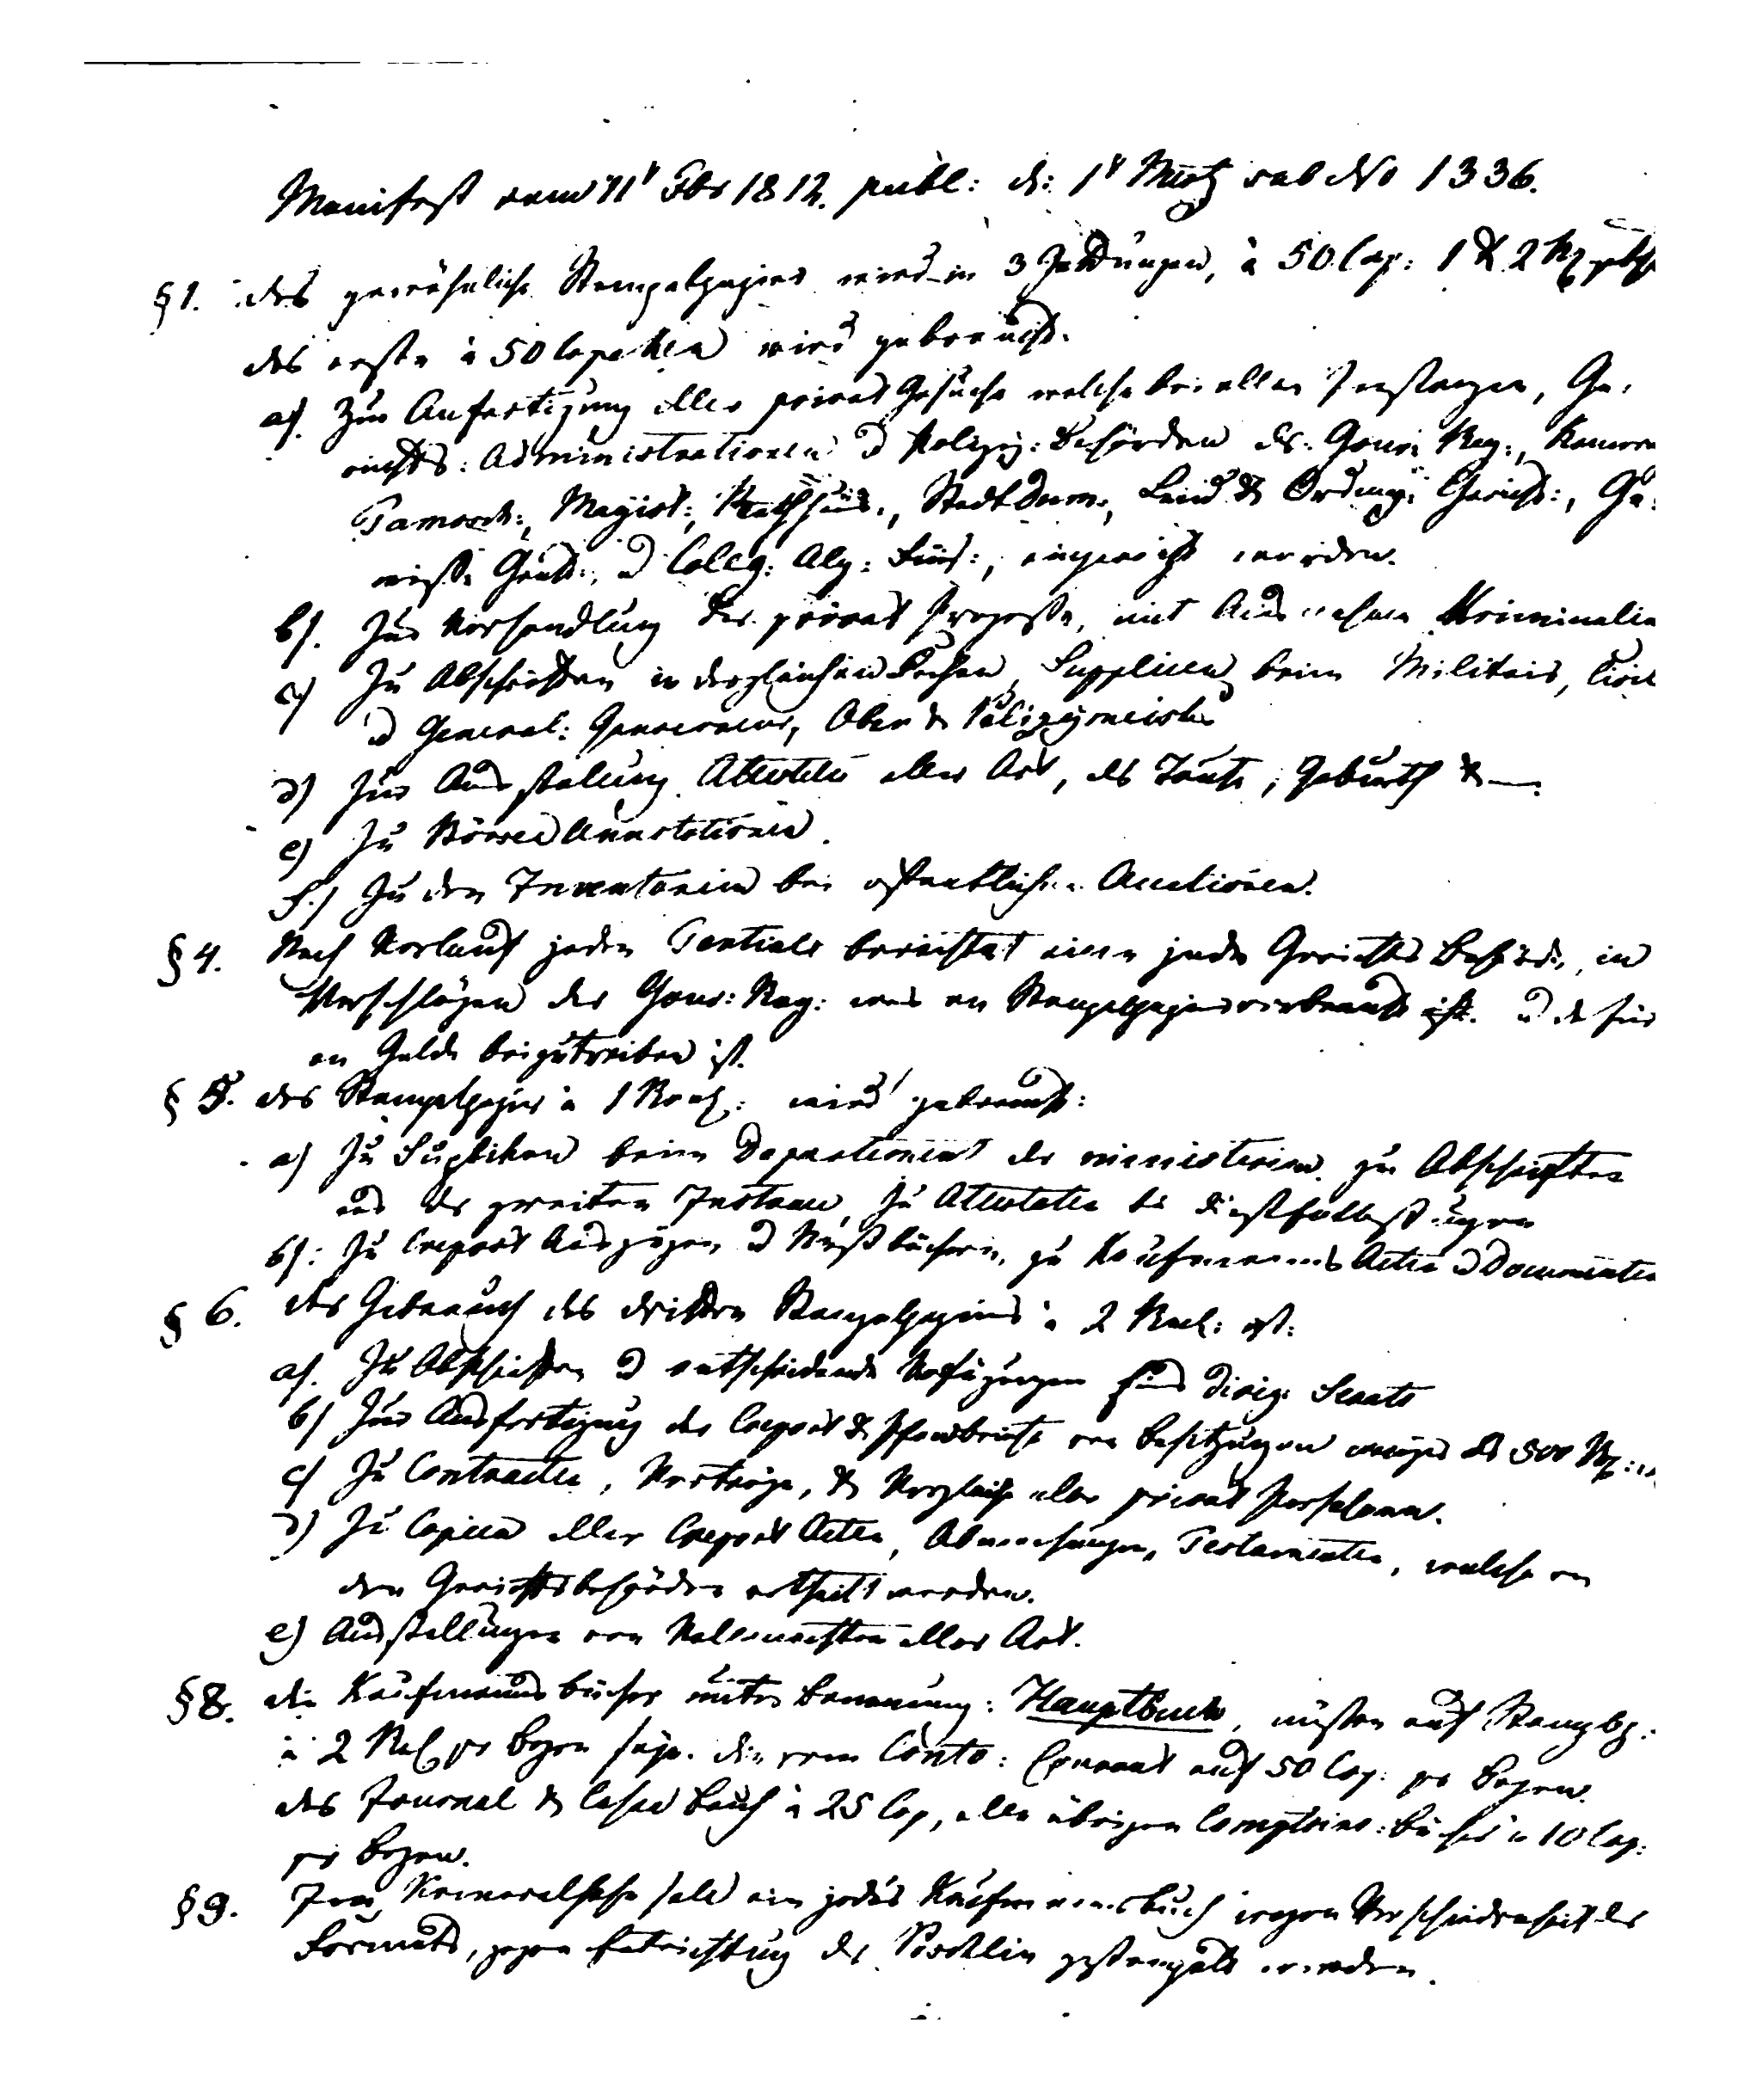 Manifest vom 11t Febr 1812. publ: d: 1t Mertz sub No 1336.
§ 1. das gewöhnliche Stempelpapier wird in 3 Gattungen, à 50 Cop: 1 & 2 Rl
das erste à 50 Copeken wird gebraucht.
a). Zur Anfertigung aller privat Gesuche welche bei allen Instanzen, Ge-
richts: Administrationen u Polizei: Behörden als: Gouv: Reg:, Kameral
Tamosch:, Magist:, Rathhäus., Stadt Dum:, Land & Ordnungs Gericht:, Ge-
wiss: Gericht:, u Colleg: Alg: Fürs:, eingereicht werden.
b). Zur Verhandlung der privat Prozesse, mit Ausnahme Kriminalien
c) Zu Abschriften in dergleichen Sachen, Suppliken beim Militair, Civil
u General: Gouverneur, Ober & Polizeymeister
d) Zur Ausstellung Attestate aller Art, als Taufe, Geburth &—.
e) Zu Börsen Annotationen.
f.) Zu den Inventarien bei öffentlichen Auctionen.
§ 4. Nach Verlauf jeden Tertials berichtet eine jede Gerichts Behörde, in
Verschlägen der Gouv: Reg: was an Stempelpapier verbraucht ist. u dafür
an Gelde beizutreiben ist.
§ 5. das Stempelpapier à 1 Rubl: wird gebraucht:
a) Zu Supliken beim Departement der ministerien zu Abschriften
aus der zweiten Instance, zu Attestaten bei Dienstentlassungen
b). Zu Crepost Auszügen u Messbüchern, zu Kaufmanns Acten u Documenten
§ 6. der Gebrauch des dritten Stempelpapiers à 2 Rubl: ist:
a). Zu Abschriften u entscheidende Verfügungen fürs Dirig: Senats
b) Zur Ausfertigung der Crepost & Pfandbriefe von Besitzungen weniger als 500 Rl:
c) Zu Contracten, Verträge, & Vergleiche aller privat Personen.
d) Zu Copien aller Crepost Acten, Abmachungen, Testamenten, welche von
den Gerichtsbehörden ertheilt werden.
e) Ausstellungen von Vollmachten aller Art.
§ 8. die Kaufmanns bücher unter Benennung: Hauptbuch, müssen auf Stemplp:
à 2 Rbl pr Bogen sein. die vom Conto: Courant auf 50 Cop: pr Bogen.
das Journal & Cassa Buch à 25 Cop, alle übrigen Comptoirs: Bücher à 10 Cop:
pr Bogen.
§ 9. Im Kameralhofe soll ein jedes Kaufmannsbuch wegen Verschiedenheit des
Formats, gegen Entrichtung der Poschlin gestempelt werden.